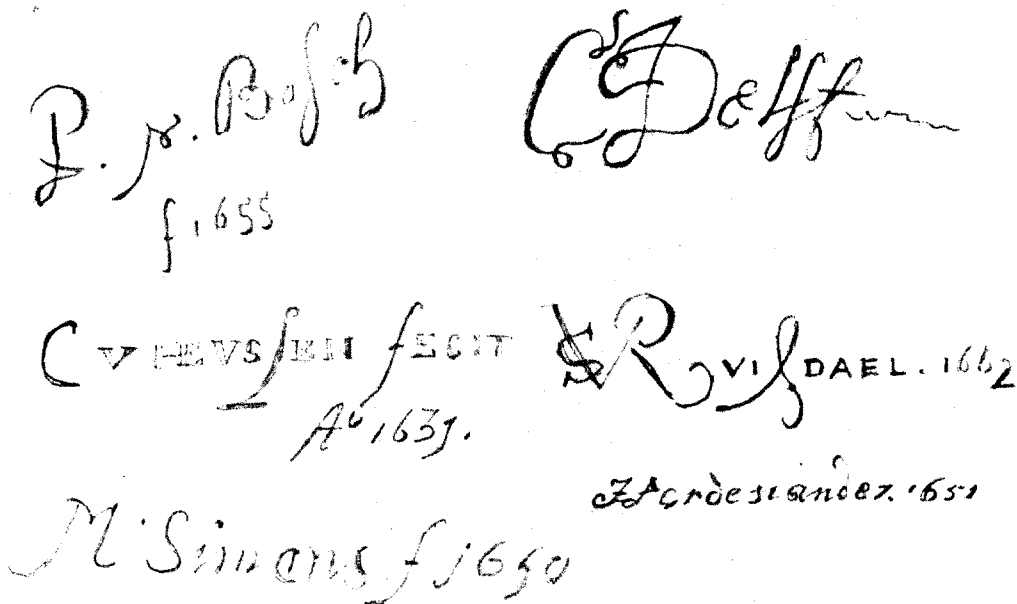 P. v. Bosch
f 1655
CDelff
C V HEVSSEN FECIT
Aº 1631.
SRVISDAEL. 1662
1651
M. Simons f 1650